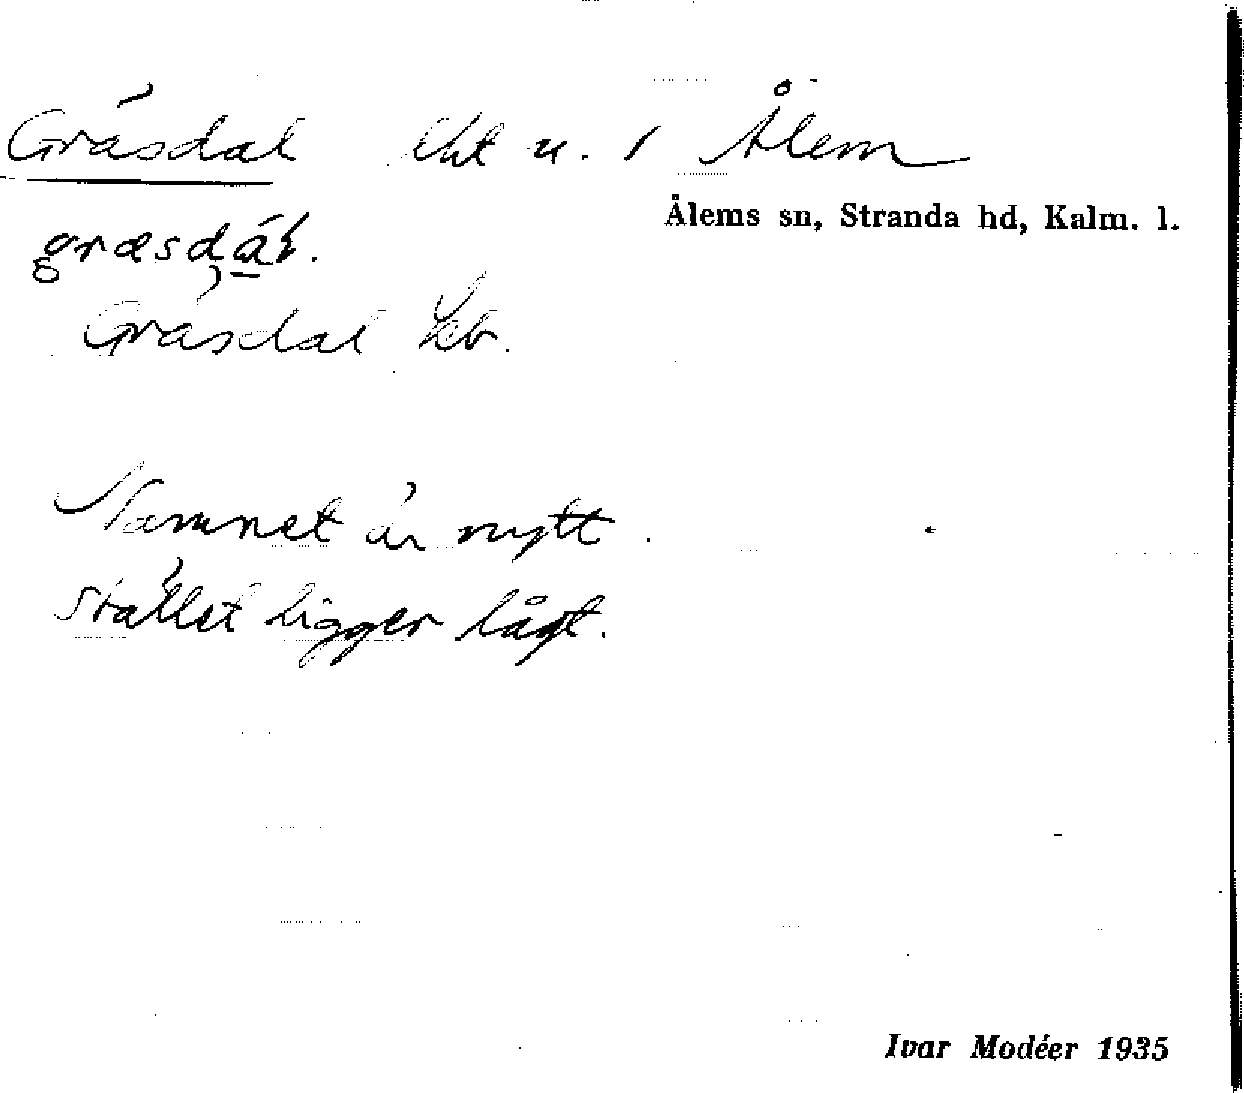 Gräsdal lht u. 1 Ålem
Ålems sn, Stranda hd, Kalm. l.
græsdál.
Gräsdal kb.
Namnet är nytt.
Stället ligger lågt.
Ivar Modéer 1935